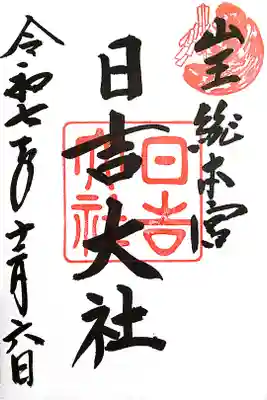 山王
総本宮
日吉大社
日吉大社
令和七年十二月六日